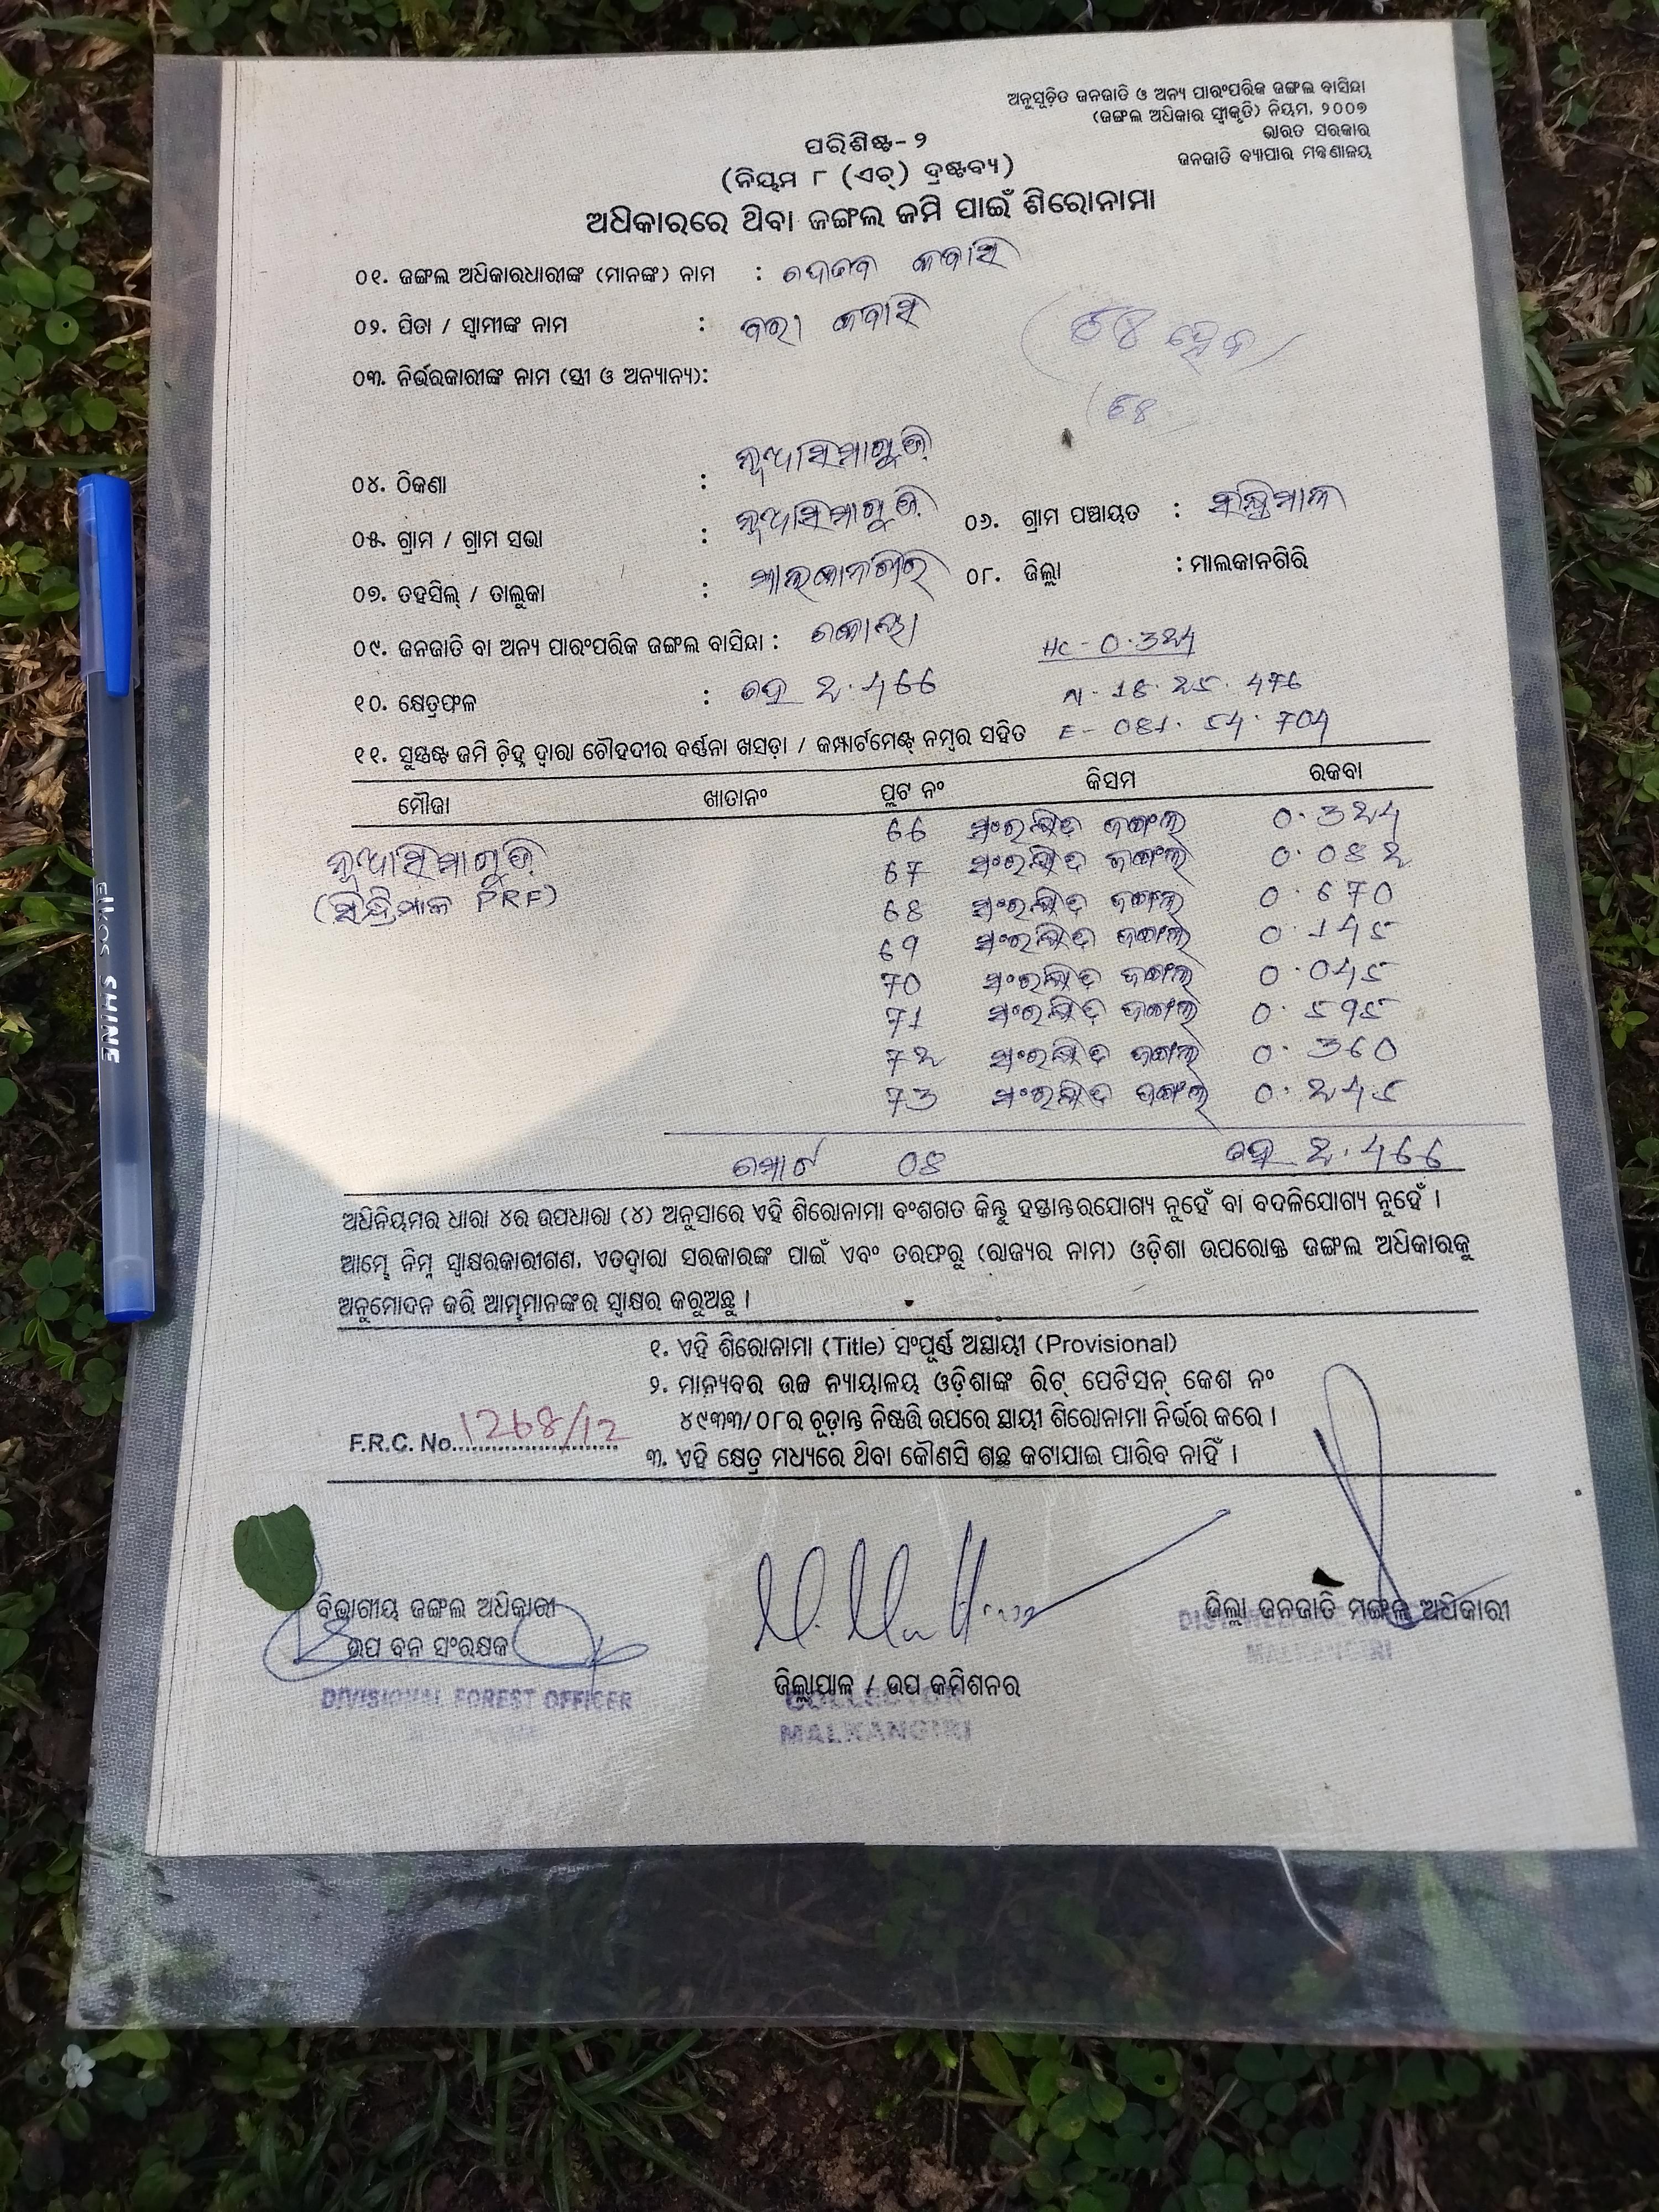 ଅନୁସୂଚିତ ଜନଜାତି ଓ ଅନ୍ୟ ପାରଂପରିକ ଜଙ୍ଗଲ ବାସିନ୍ଦା
(ଜଙ୍ଗଲ ଅଧିକାର ସ୍ୱୀକୃତି) ନିୟମ, ୨୦୦୭
ଭାରତ ସରକାର
ଜନଜାତି ବ୍ୟାପାର ମନ୍ତ୍ରଣାଳୟ
ପରିଶିଷ୍ଟ-୨
(ନିୟମ ୮ (ଏଚ୍) ଦ୍ରଷ୍ଟବ୍ୟ)
ଅଧିକାରରେ ଥିବା ଜଙ୍ଗଲ ଜମି ପାଇଁ ଶିରୋନାମା
୦୧. ଜଙ୍ଗଲ ଅଧିକାରଧାରୀଙ୍କ (ମାନଙ୍କ) ନାମ : କବାସି
୦୨. ପିତା / ସ୍ୱାମୀଙ୍କ ନାମ : କବାସି
୦୩. ନିର୍ଭରକାରୀଙ୍କ ନାମ (ସ୍ତ୍ରୀ ଓ ଅନ୍ୟାନ୍ୟ):
୦୪. ଠିକଣା : ନୂଆସିମାଗୁଡ଼ି
୦୫. ଗ୍ରାମ / ଗ୍ରାମ ସଭା : ନୂଆସିମାଗୁଡ଼ି ୦୬. ଗ୍ରାମ ପଞ୍ଚାୟତ : ସିନ୍ଦ୍ରିମାଳ
୦୭. ତହସିଲ୍ / ତାଲୁକା : ମାଲକାନଗିରି ୦୮. ଜିଲ୍ଲା : ମାଲକାନଗିରି
୦୯. ଜନଜାତି ବା ଅନ୍ୟ ପାରଂପରିକ ଜଙ୍ଗଲ ବାସିନ୍ଦା : କୋୟା
HC - 0.324
୧୦. କ୍ଷେତ୍ରଫଳ : ହେ 2.466 N- 18. 25. 476
୧୧. ସୁସ୍ପଷ୍ଟ ଜମି ଚିହ୍ନ ଦ୍ୱାରା ଚୌହଦୀର ବର୍ଣ୍ଣନା ଖସଡ଼ା / କମ୍ପାର୍ଟମେଣ୍ଟ୍ ନମ୍ବର ସହିତ E- 081. 54. 704
ମୌଜା ଖାତାନଂ ପ୍ଲଟ ନଂ କିସମ ରକବା
66 ସଂରକ୍ଷିତ ଜଙ୍ଗଲ 0.324
ନୂଆସିମାଗୁଡ଼ି 67 ସଂରକ୍ଷିତ ଜଙ୍ଗଲ 0.082
(ସିନ୍ଦ୍ରିମାଳ PRF) 68 ସଂରକ୍ଷିତ ଜଙ୍ଗଲ 0.670
69 ସଂରକ୍ଷିତ ଜଙ୍ଗଲ 0.145
70 ସଂରକ୍ଷିତ ଜଙ୍ଗଲ 0.045
71 ସଂରକ୍ଷିତ ଜଙ୍ଗଲ 0.595
72 ସଂରକ୍ଷିତ ଜଙ୍ଗଲ 0.360
73 ସଂରକ୍ଷିତ ଜଙ୍ଗଲ 0.245
ମୋଟ 08 ହେ 2.466
ଅଧିନିୟମର ଧାରା ୪ର ଉପଧାରା (୪) ଅନୁସାରେ ଏହି ଶିରୋନାମା ବଂଶଗତ କିନ୍ତୁ ହସ୍ତାନ୍ତରଯୋଗ୍ୟ ନୁହେଁ ବା ବଦଳିଯୋଗ୍ୟ ନୁହେଁ ।
ଆମ୍ଭେ ନିମ୍ନ ସ୍ୱାକ୍ଷରକାରୀଗଣ, ଏତଦ୍ୱାରା ସରକାରଙ୍କ ପାଇଁ ଏବଂ ତରଫରୁ (ରାଜ୍ୟର ନାମ) ଓଡ଼ିଶା ଉପରୋକ୍ତ ଜଙ୍ଗଲ ଅଧିକାରକୁ
ଅନୁମୋଦନ କରି ଆମ୍ଭମାନଙ୍କର ସ୍ୱାକ୍ଷର କରୁଅଛୁ ।
୧. ଏହି ଶିରୋନାମା (Title) ସଂପୂର୍ଣ୍ଣ ଅସ୍ଥାୟୀ (Provisional)
୨. ମାନ୍ୟବର ଉଚ୍ଚ ନ୍ୟାୟାଳୟ ଓଡ଼ିଶାଙ୍କ ରିଟ୍ ପେଟିସନ୍ କେଶ ନଂ
୪୯୩୩/୦୮ର ଚୂଡ଼ାନ୍ତ ନିଷ୍ପତ୍ତି ଉପରେ ସ୍ଥାୟୀ ଶିରୋନାମା ନିର୍ଭର କରେ ।
F.R.C. No. 1268/12
୩. ଏହି କ୍ଷେତ୍ର ମଧ୍ୟରେ ଥିବା କୌଣସି ଗଛ କଟାଯାଇ ପାରିବ ନାହିଁ ।
ବିଭାଗୀୟ ଜଙ୍ଗଲ ଅଧିକାରୀ
ଉପ ବନ ସଂରକ୍ଷକ
DIVISIONAL FOREST OFFICER
ଜିଲ୍ଲାପାଳ / ଉପ କମିଶନର
COLLECTOR
MALKANGIRI
ଜିଲ୍ଲା ଜନଜାତି ମଙ୍ଗଳ ଅଧିକାରୀ
MALKANGIRI
SHINE